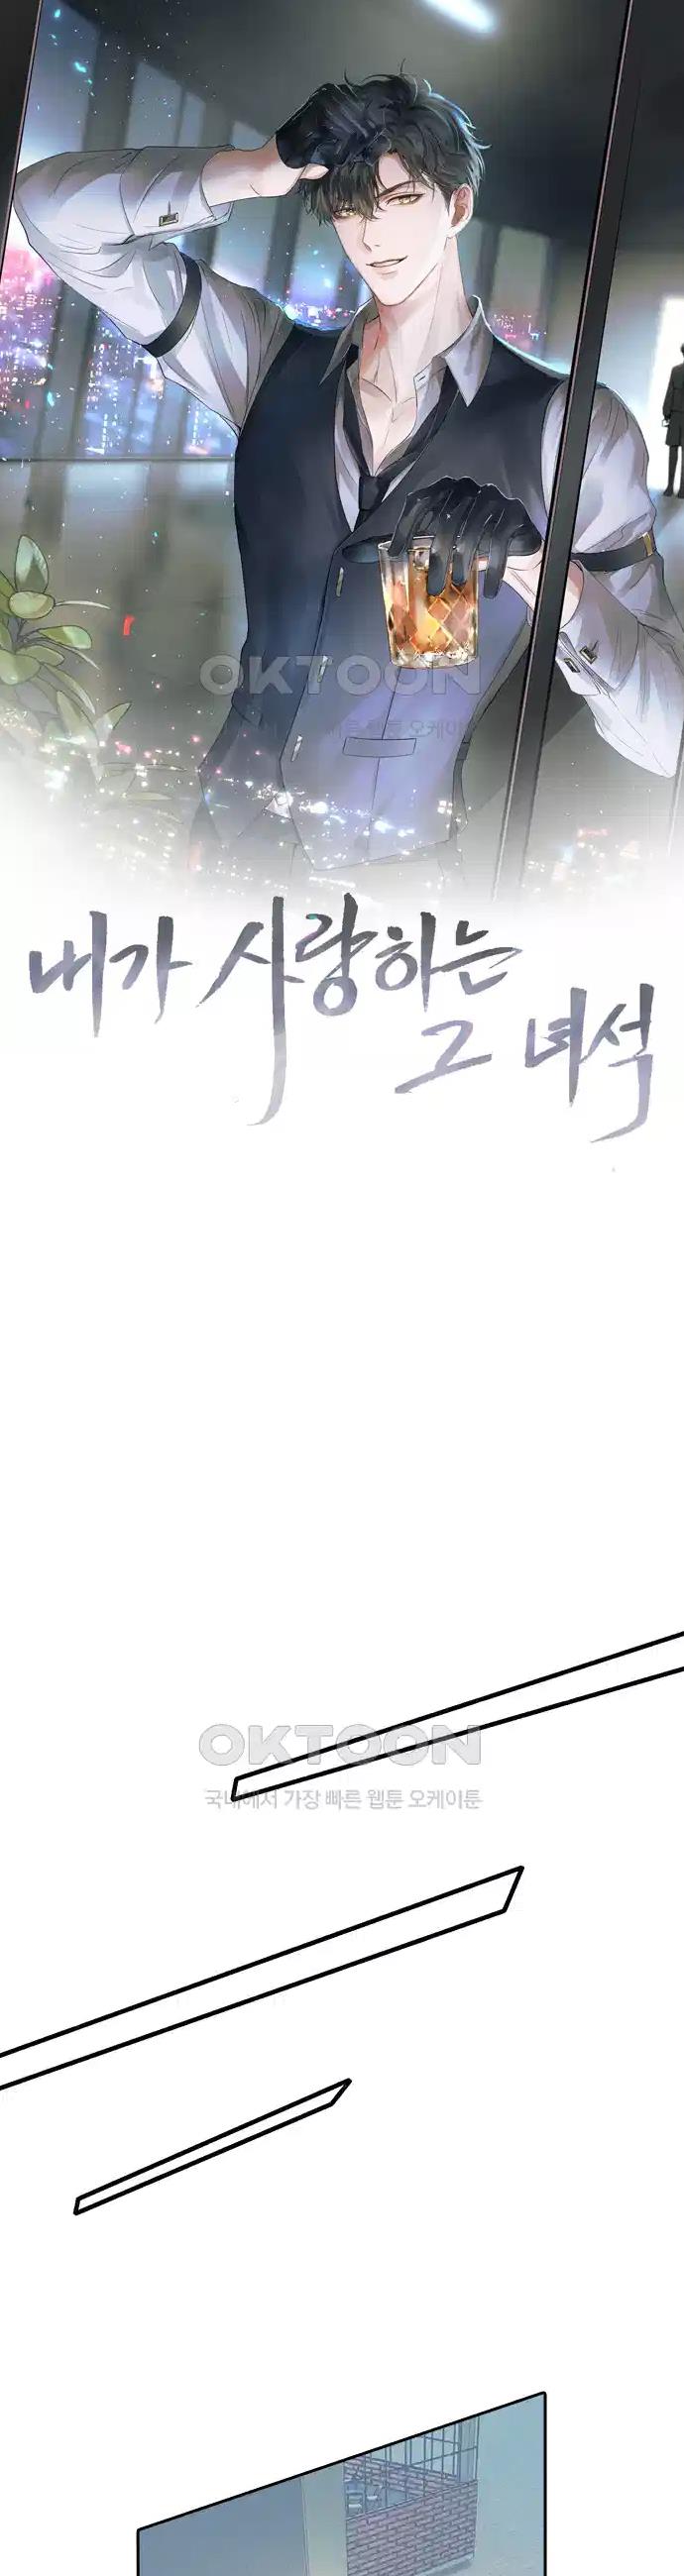 OKTOON
빠른 웹툰 오케이툰
내가 사랑하는
그 녀석
OKTOON
국내에서 가장 빠른 웹툰 오케이툰